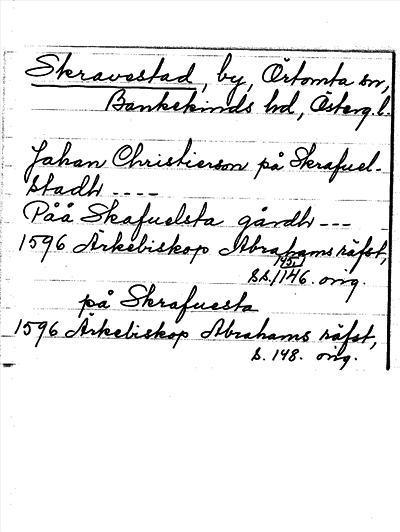 Skravestad, by, Örtomta sn,
Bankekinds hd, Österg. l.
Johan Christierson på Skrafuel-
stadh ----
Påå Skafuelsta gårdh ---
1596 Ärkebiskop Abrahams räfst,
ss. 145, 146. orig.
på Skrafuesta
1596 Ärkebiskop Abrahams räfst,
s. 148. orig.